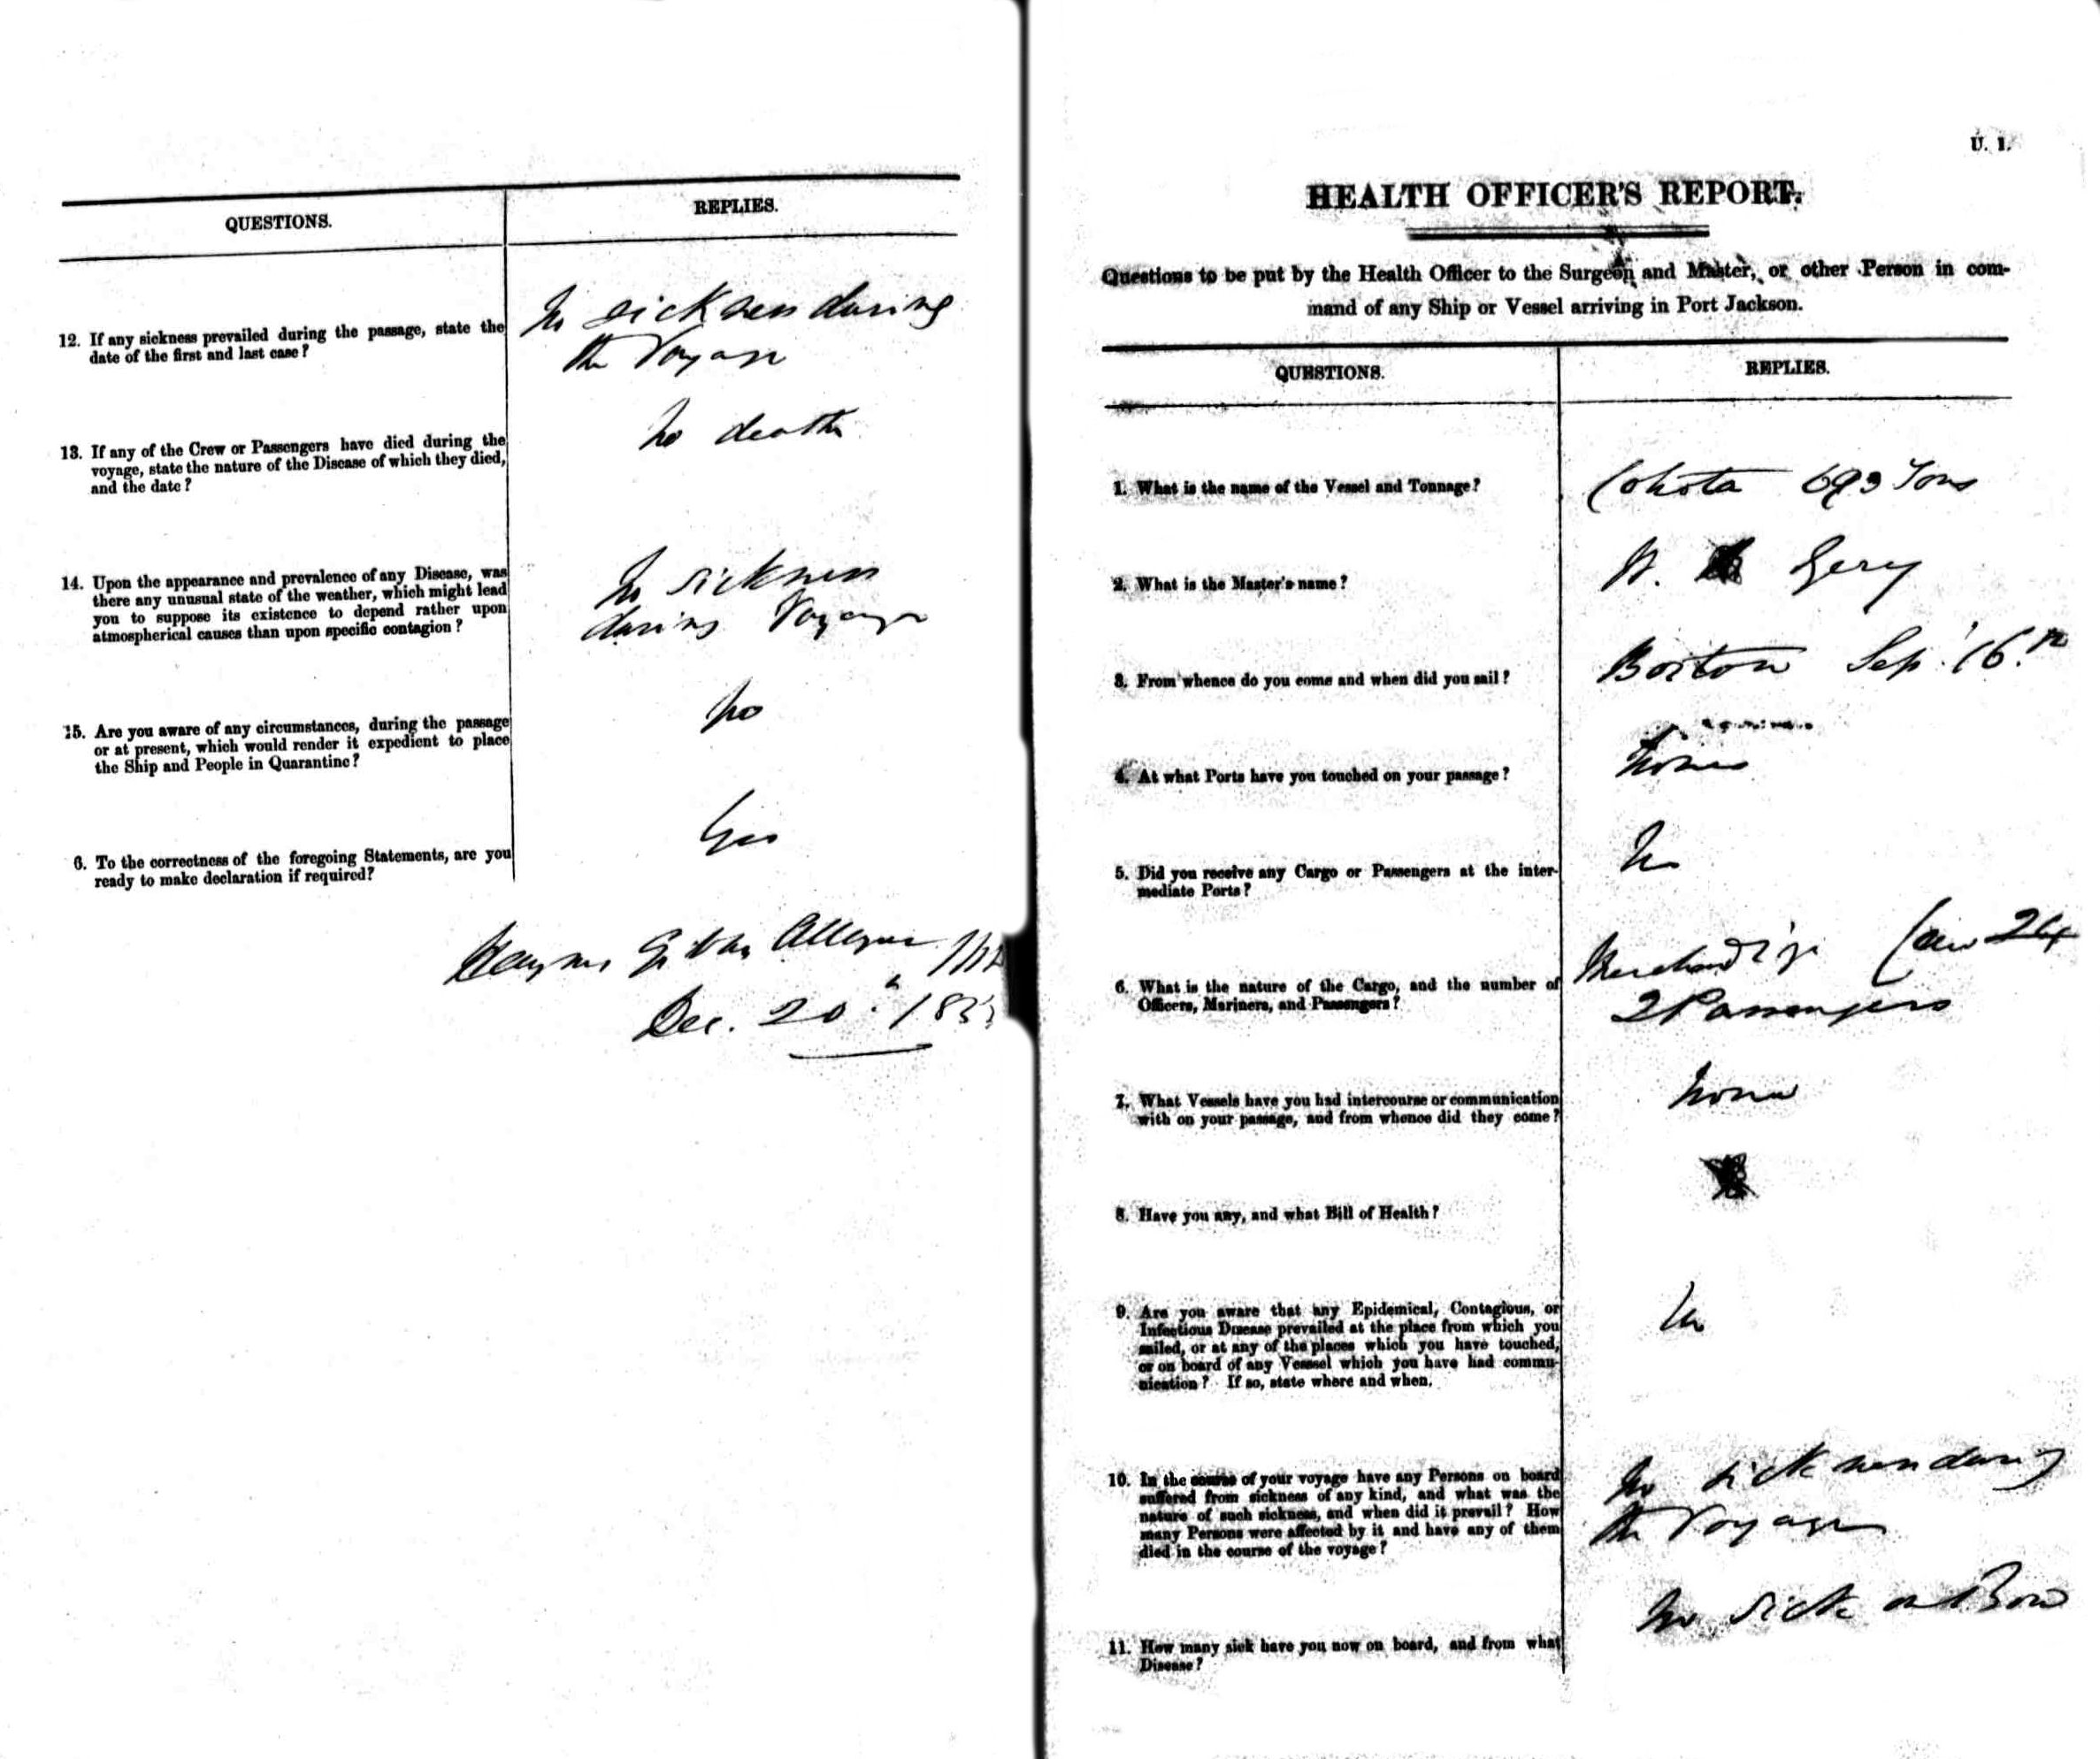 QUESTIONS.
REPLIES.
12. If any sickness prevailed during the passage, state the
date of the first and last case?
No sickness during
the Voyage
13. If any of the Crew or Passengers have died during the
voyage, state the nature of the Disease of which they died,
and the date?
No death
14. Upon the appearance and prevalence of any Disease, was
there any unusual state of the weather, which might lead
you to suppose its existence to depend rather upon
atmospherical causes than upon specific contagion?
No sickness
during Voyage
15. Are you aware of any circumstances, during the passage
or at present, which would render it expedient to place
the Ship and People in Quarantine?
No
6. To the correctness of the foregoing Statements, are you
ready to make declaration if required?
Yes
Haynes Gibbes Alleyne
Dec. 20th
U. 1.
HEALTH OFFICER'S REPORT.
Questions to be put by the Health Officer to the Surgeon and Master, or other Person in com-
mand of any Ship or Vessel arriving in Port Jackson.
QUESTIONS.
REPLIES.
1. What is the name of the Vessel and Tonnage?
Cohota 693 Tons
2. What is the Master's name?
Gery
3. From whence do you come and when did you sail?
Boston Sep. 16th
4. At what Ports have you touched on your passage?
None
5. Did you receive any Cargo or Passengers at the inter-
mediate Ports?
No
6. What is the nature of the Cargo, and the number of
Officers, Mariners, and Passengers?
Merchandize Crew 24
2 Passengers
7. What Vessels have you had intercourse or communication
with on your passage, and from whence did they come?
None
8. Have you any, and what Bill of Health?
9. Are you aware that any Epidemical, Contagious, or
Infectious Disease prevailed at the place from which you
sailed, or at any of the places which you have touched,
or on board of any Vessel which you have had commu-
nication? If so, state where and when.
No
10. In the course of your voyage have any Persons on board
suffered from sickness of any kind, and what was the
nature of such sickness, and when did it prevail? How
many Persons were affected by it and have any of them
died in the course of the voyage?
No sickness during
the Voyage
11. How many sick have you now on board, and from what
Disease?
No sick on Board